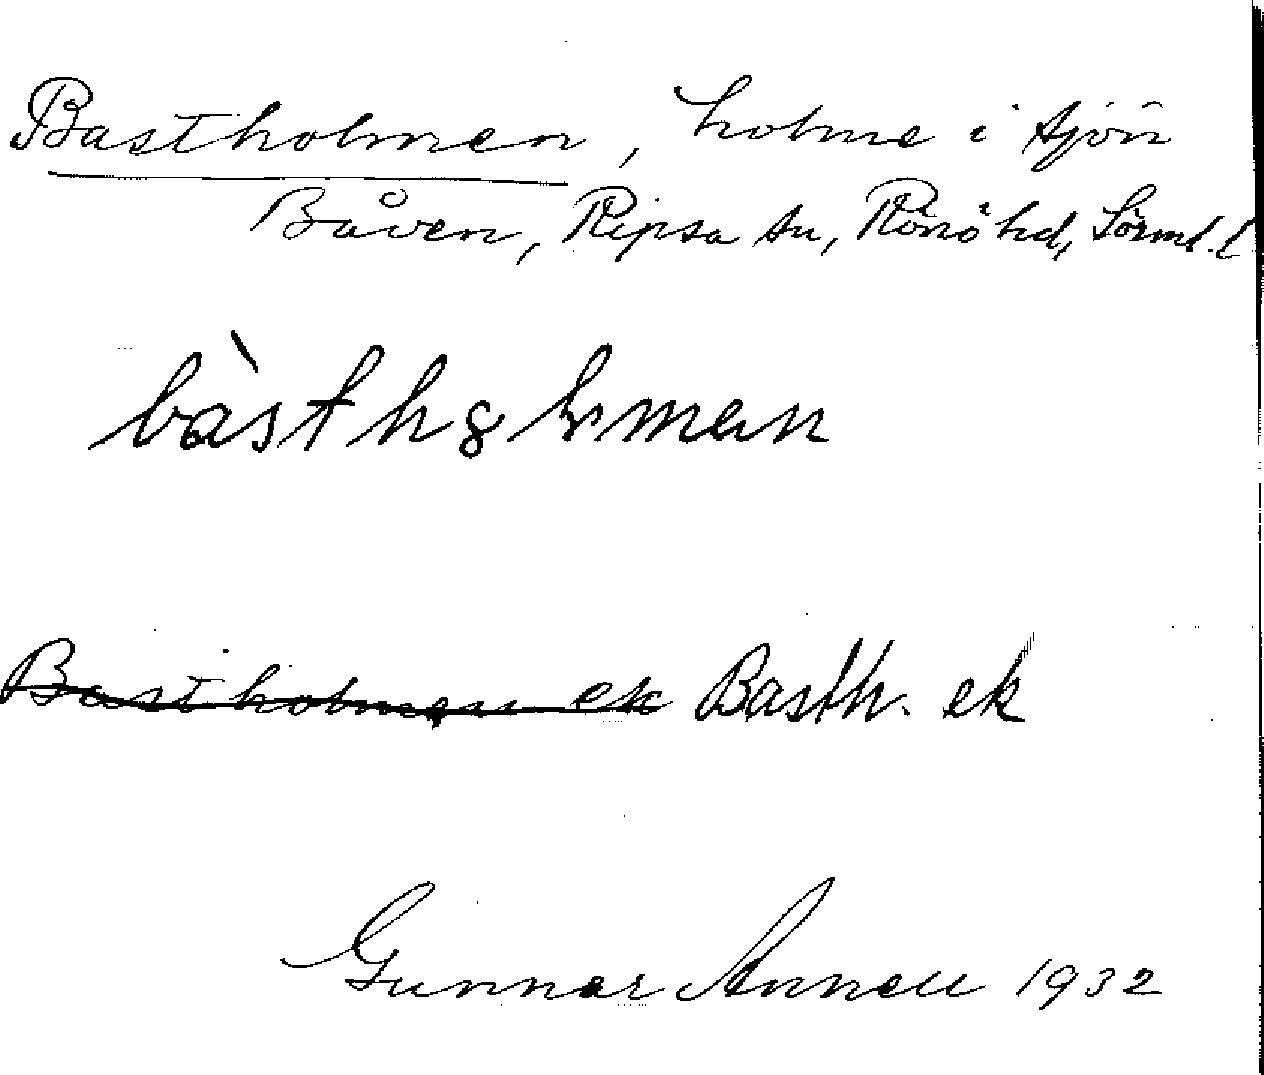 Bastholmen, holme i sjön
Båven, Ripsa sn, Rönö hd, Sörml. l
bàsth8lman
Bastholmen ek Basth. ek
Gunnar Annell 1932